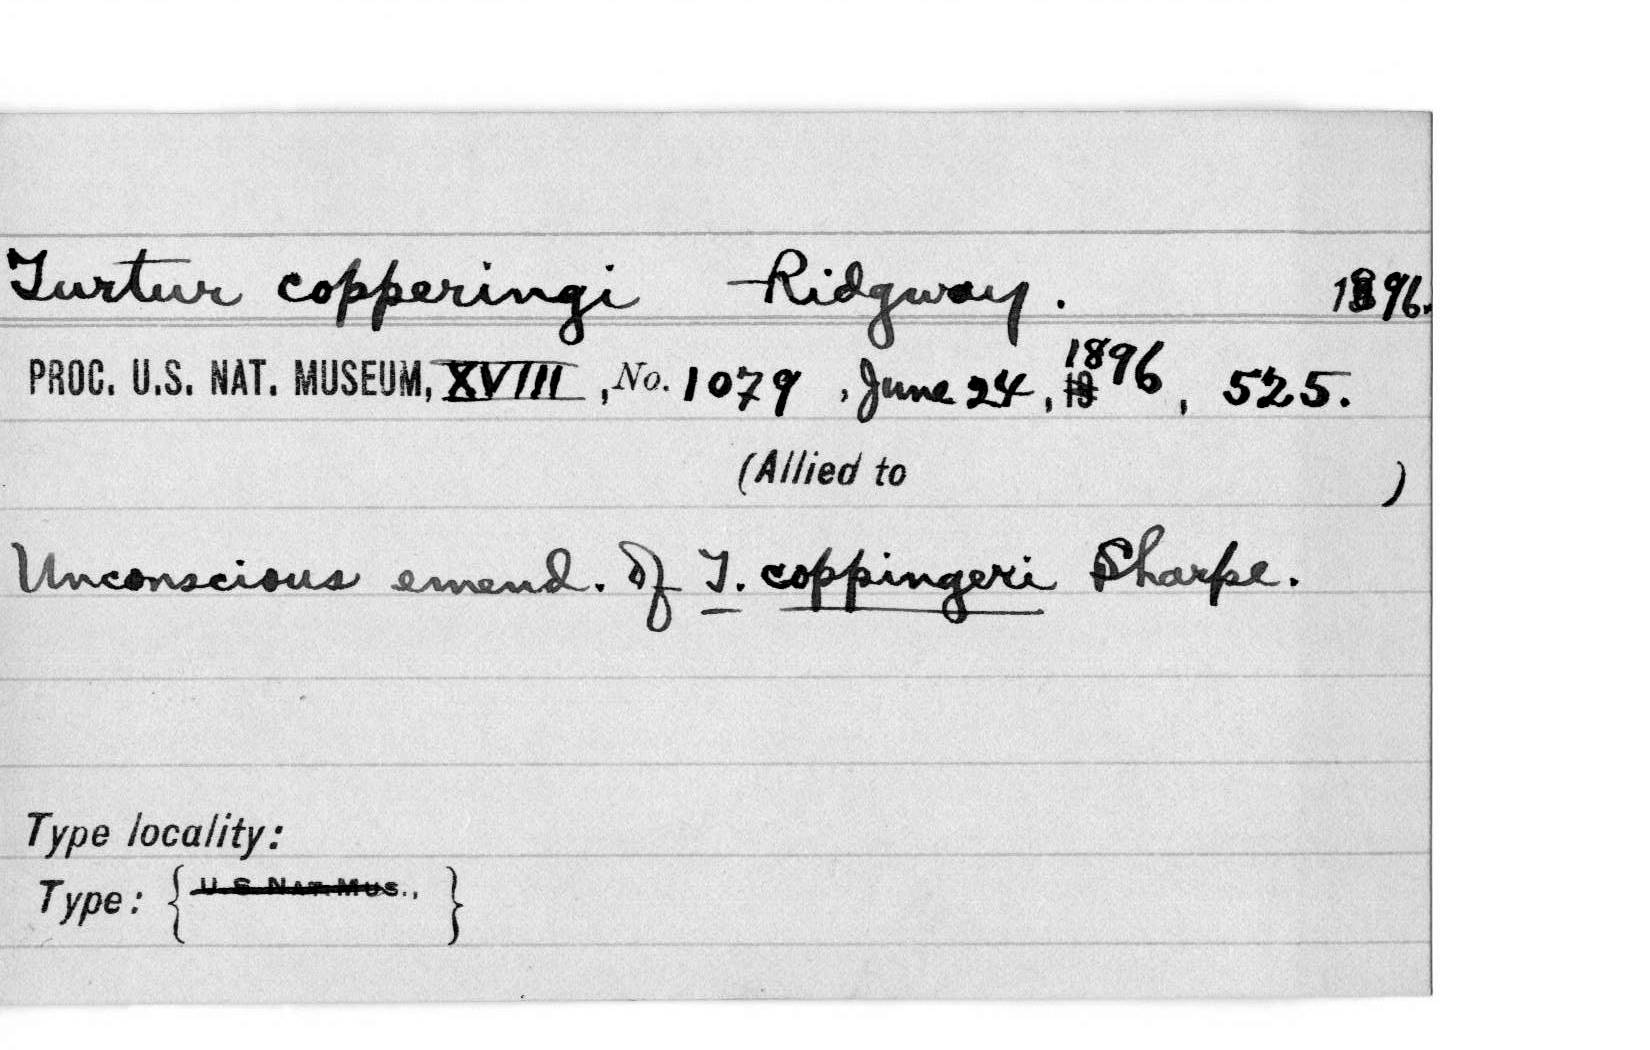 Turtur copperingi Ridgway. 1896.
PROC. U.S. NAT. MUSEUM, XVIII, No. 1079, June 24, 1896, 525.
(Allied to )
Unconscious emend. of T. coppingeri Sharpe.
Type locality:
Type: { U.S. NAT. MUS., }